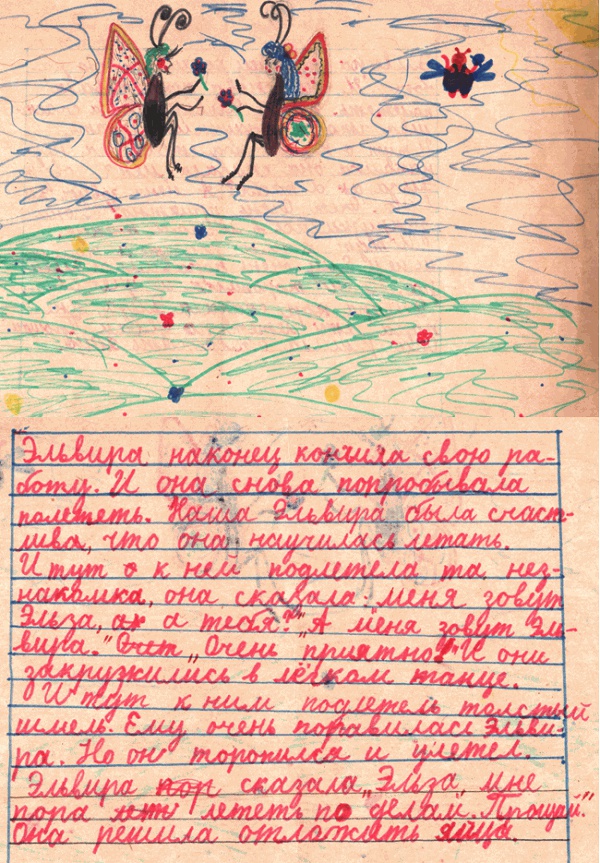 Эльвира наконец кончила свою ра-
боту. И она снова попробывала
полететь. Наша Эльвира была счаст-
лива, что она научилась летать.
И тут к ней подлетела та нез-
накомка, она сказала „меня зовут
Эльза, а тебя?" „А меня зовут Эль-
вира." „Очень приятно!" И они
закружились в лёгком танце.
И тут к ним подлетель толстый
шмель. Ему очень поравилась Эльви-
ра. Но он торопился и улетел.
Эльвира пор сказала „Эльза, мне
пора лететь по делам. Прощай."
Она решила отложить яйца.